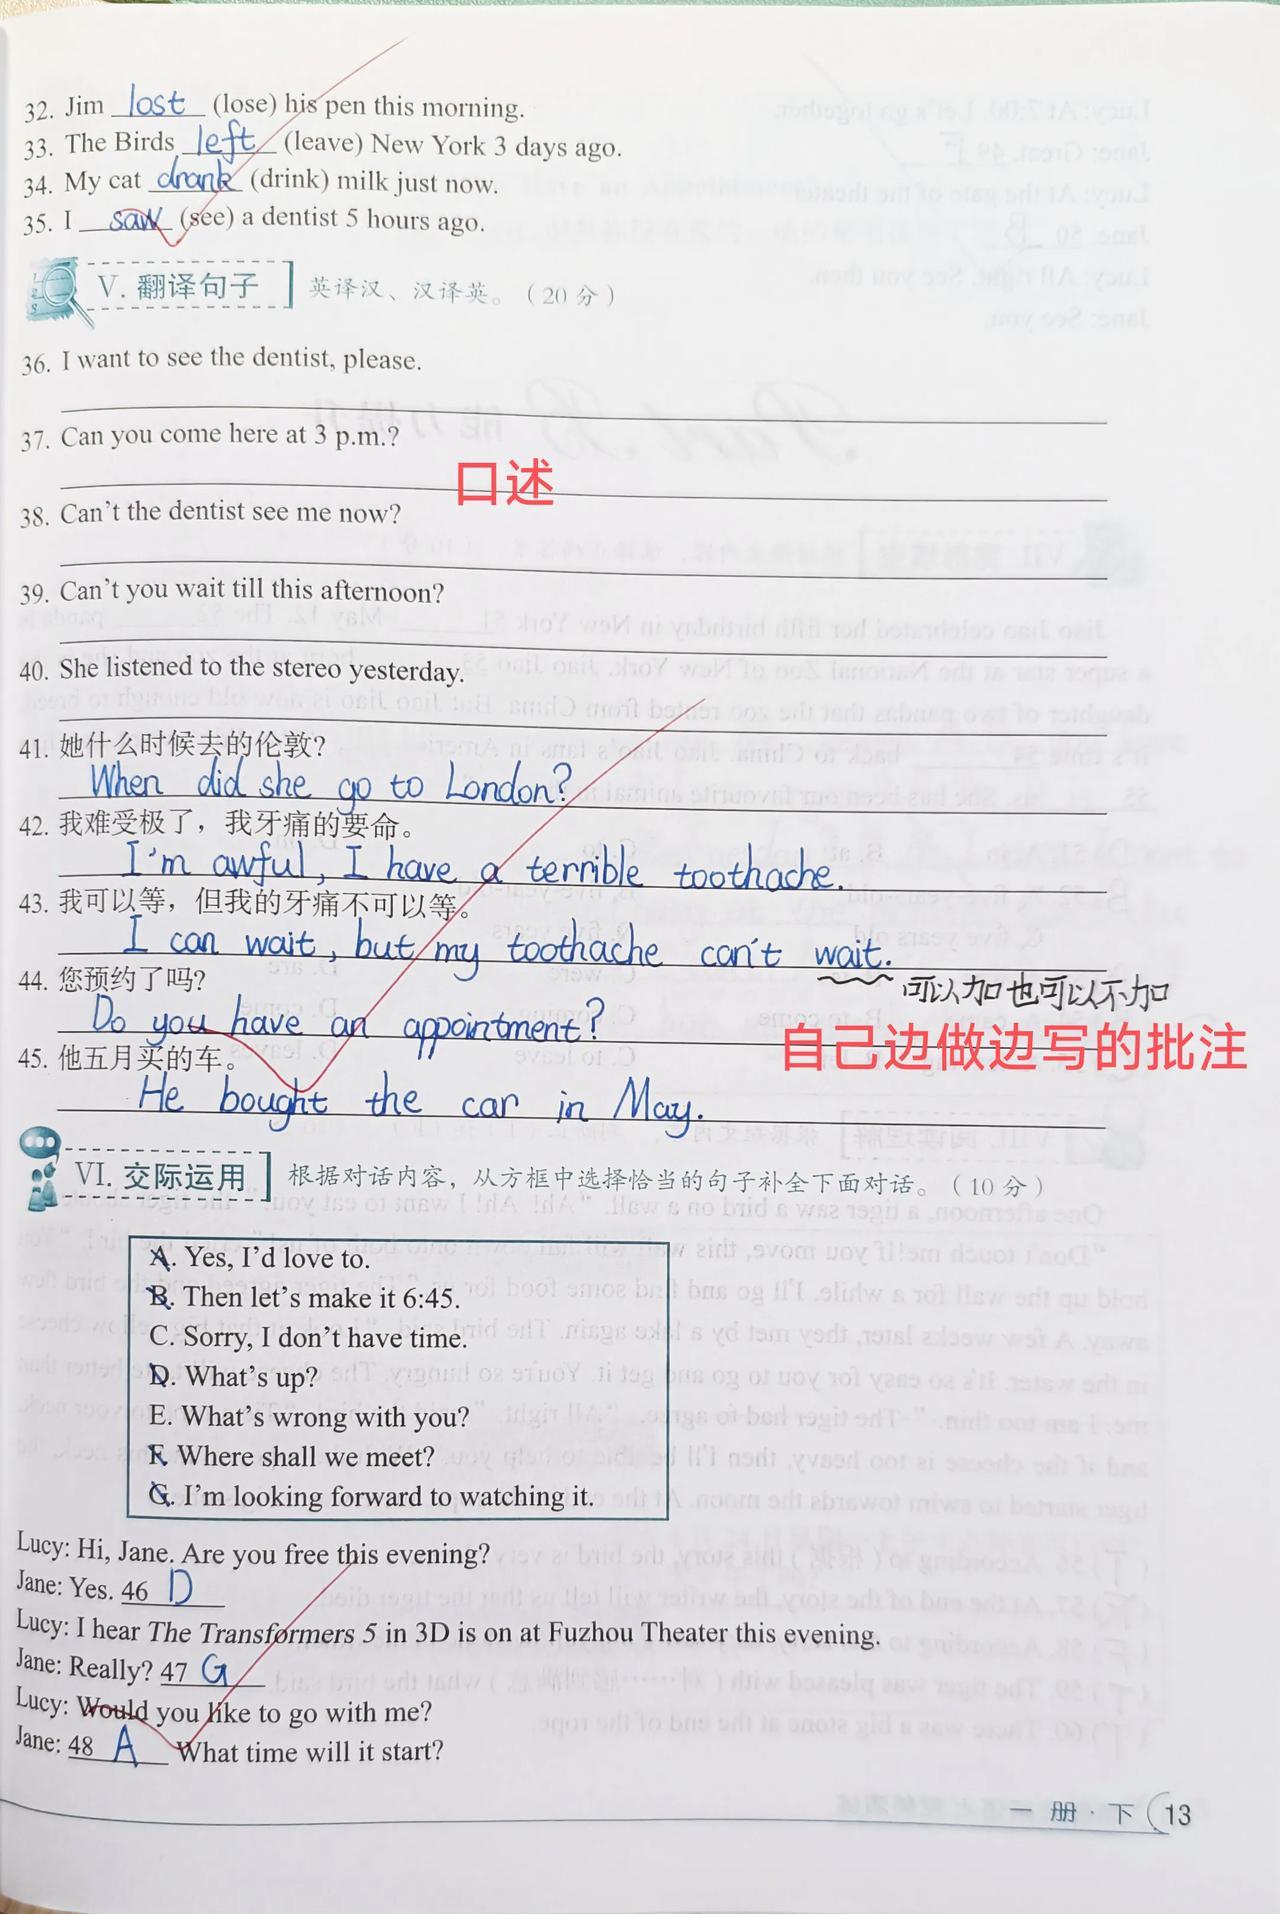 32. Jim lost (lose) his pen this morning.
33. The Birds left (leave) New York 3 days ago.
34. My cat drank (drink) milk just now.
35. I saw (see) a dentist 5 hours ago.
V. 翻译句子 英译汉、汉译英。（20 分）
36. I want to see the dentist, please.
37. Can you come here at 3 p.m.?
口述
38. Can't the dentist see me now?
39. Can't you wait till this afternoon?
40. She listened to the stereo yesterday.
41. 她什么时候去的伦敦?
When did she go to London?
42. 我难受极了，我牙痛的要命。
I'm awful, I have a terrible toothache.
43. 我可以等，但我的牙痛不可以等。
I can wait, but my toothache can't wait.
44. 您预约了吗? 可以加也可以不加
Do you have an appointment?
自己边做边写的批注
45. 他五月买的车。
He bought the car in May.
VI. 交际运用 根据对话内容，从方框中选择恰当的句子补全下面对话。（10 分）
A. Yes, I'd love to.
B. Then let's make it 6:45.
C. Sorry, I don't have time.
D. What's up?
E. What's wrong with you?
F. Where shall we meet?
G. I'm looking forward to watching it.
Lucy: Hi, Jane. Are you free this evening?
Jane: Yes. 46 D
Lucy: I hear The Transformers 5 in 3D is on at Fuzhou Theater this evening.
Jane: Really? 47 G
Lucy: Would you like to go with me?
Jane: 48 A What time will it start?
一 册 · 下 13